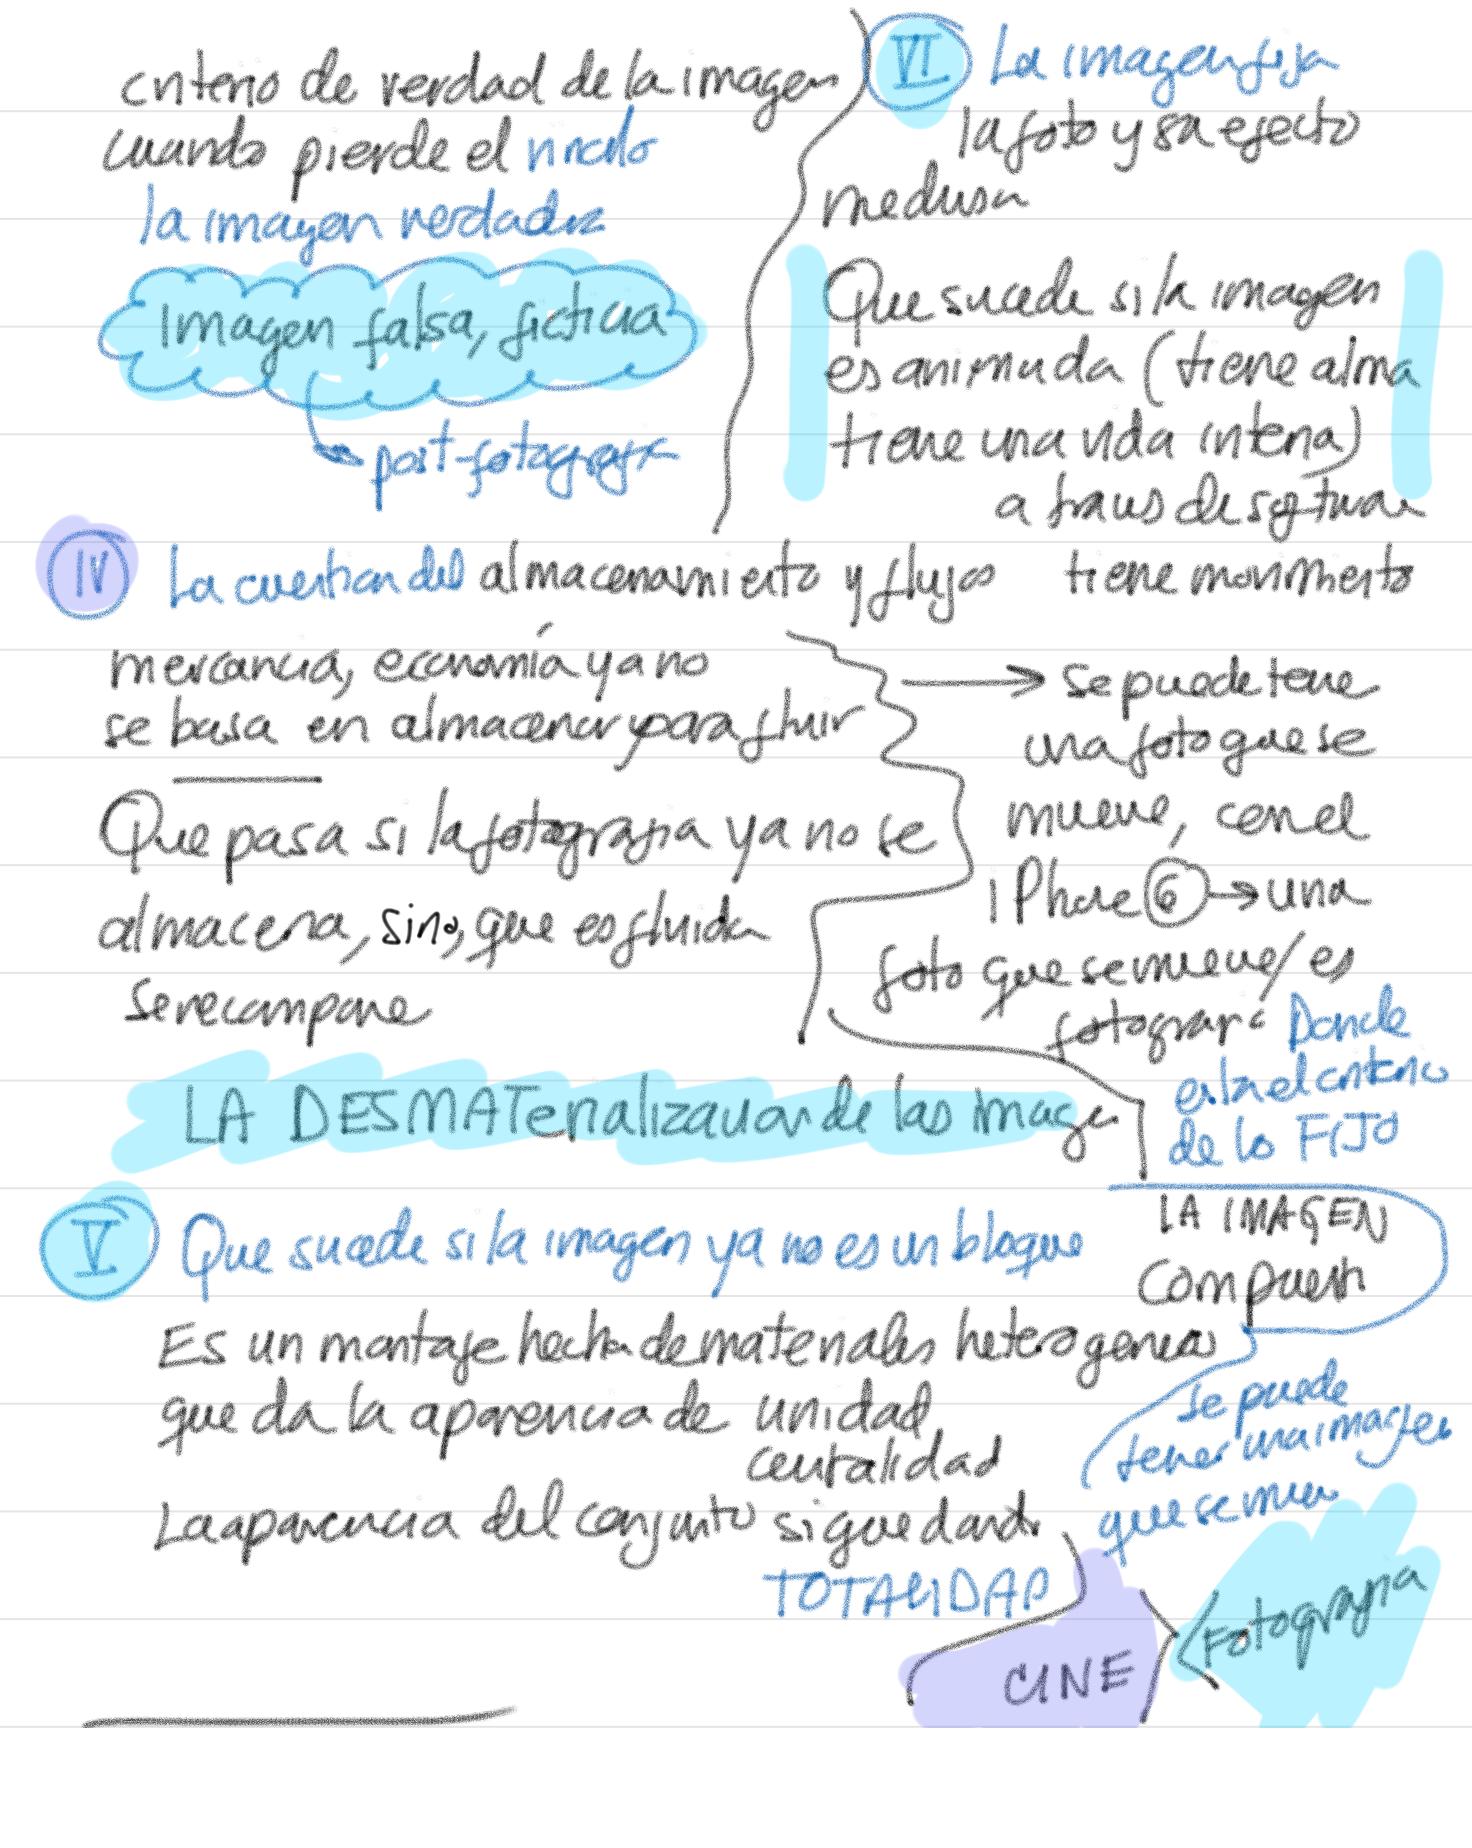 criterio de verdad de la imagen
cuando pierde el vinculo
la imagen verdadera
Imagen falsa, ficticia
post-fotografia
IV La cuestion del almacenamiento y flujos
mercancia, economía ya no
se basa en almacenar y para fluir
Que pasa si la fotografia ya no se
almacena, sino, que es fluida
se recompone
LA DESMATerializacion de las imagen
V Que sucede si la imagen ya no es un bloque
Es un montaje hecho de materiales heterogeneos
que da la aparencia de unidad
centralidad
La aparencia del conjunto sigue dando
TOTALIDAD
VI La imagen fija
la foto y su efecto
medusa
Que sucede si la imagen
es animada (tiene alma
tiene una vida interna)
a traves de software
tiene movimiento
→ Se puede tener
una foto que se
mueve, con el
iPhone 6 → una
foto que se mueve/ es
Donde
esta el criterio
de lo FIJO
LA IMAGEN
Compuesta
se puede
tener una imagen
que se mueve
CINE
Fotografia